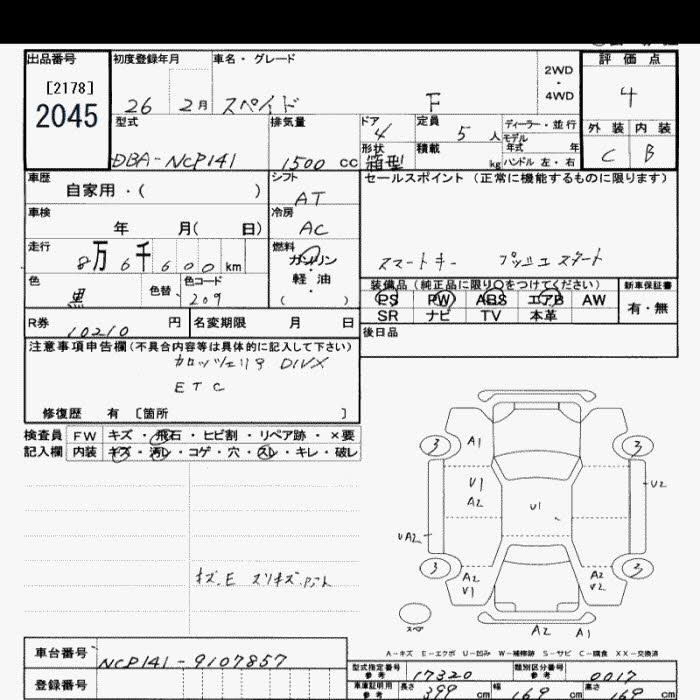 出品番号 初度登録年月 車名・グレード 評価点
[2178] 2WD・4WD
2045 26 2月 スペイド F 4
型式 排気量 ドア 4 定員 5 人 ディーラー・並行 外装 内装
モデル年式 年
DBA-NCP141 1500 cc 形状 箱型 積載 kg ハンドル 左・右 C B
車歴 シフト セールスポイント (正常に機能するものに限ります)
自家用・( ) AT
車検 冷房
年 月( 日) AC
走行 燃料
8万6千600km ガソリン スマートキー プッシュスタート
色 色替 色コード 軽・油 装備品(純正品に限り○をつけてください) 新車保証書
黒 209 ( ・ ) PS PW ABS エアB AW 有・無
SR ナビ TV 本革
R券 10210 円 名変期限 月 日 後日品
注意事項申告欄(不具合内容等は具体的に記入して下さい)
カロッツェリア DIVX
ETC
修復歴 有 [箇所 ]
検査員 FW キズ・飛石・ヒビ割・リペア跡・×要
記入欄 内装 キズ・汚レ・コゲ・穴・スレ・キレ・破レ
3 A1 3
U1 U2
A2 U1
UA2
3 A2 A2 3
V1 V2
スペ A2 A1
A-キズ E-エクボ U-凹み W-補修跡 S-サビ C-腐食 XX-交換済
車台番号 NCP141-9107857
登録番号
型式指定番号 参考 17320 類別区分番号 参考 0017
車庫証明用 参考 長さ 399 cm 幅 169 cm 高さ 169 cm